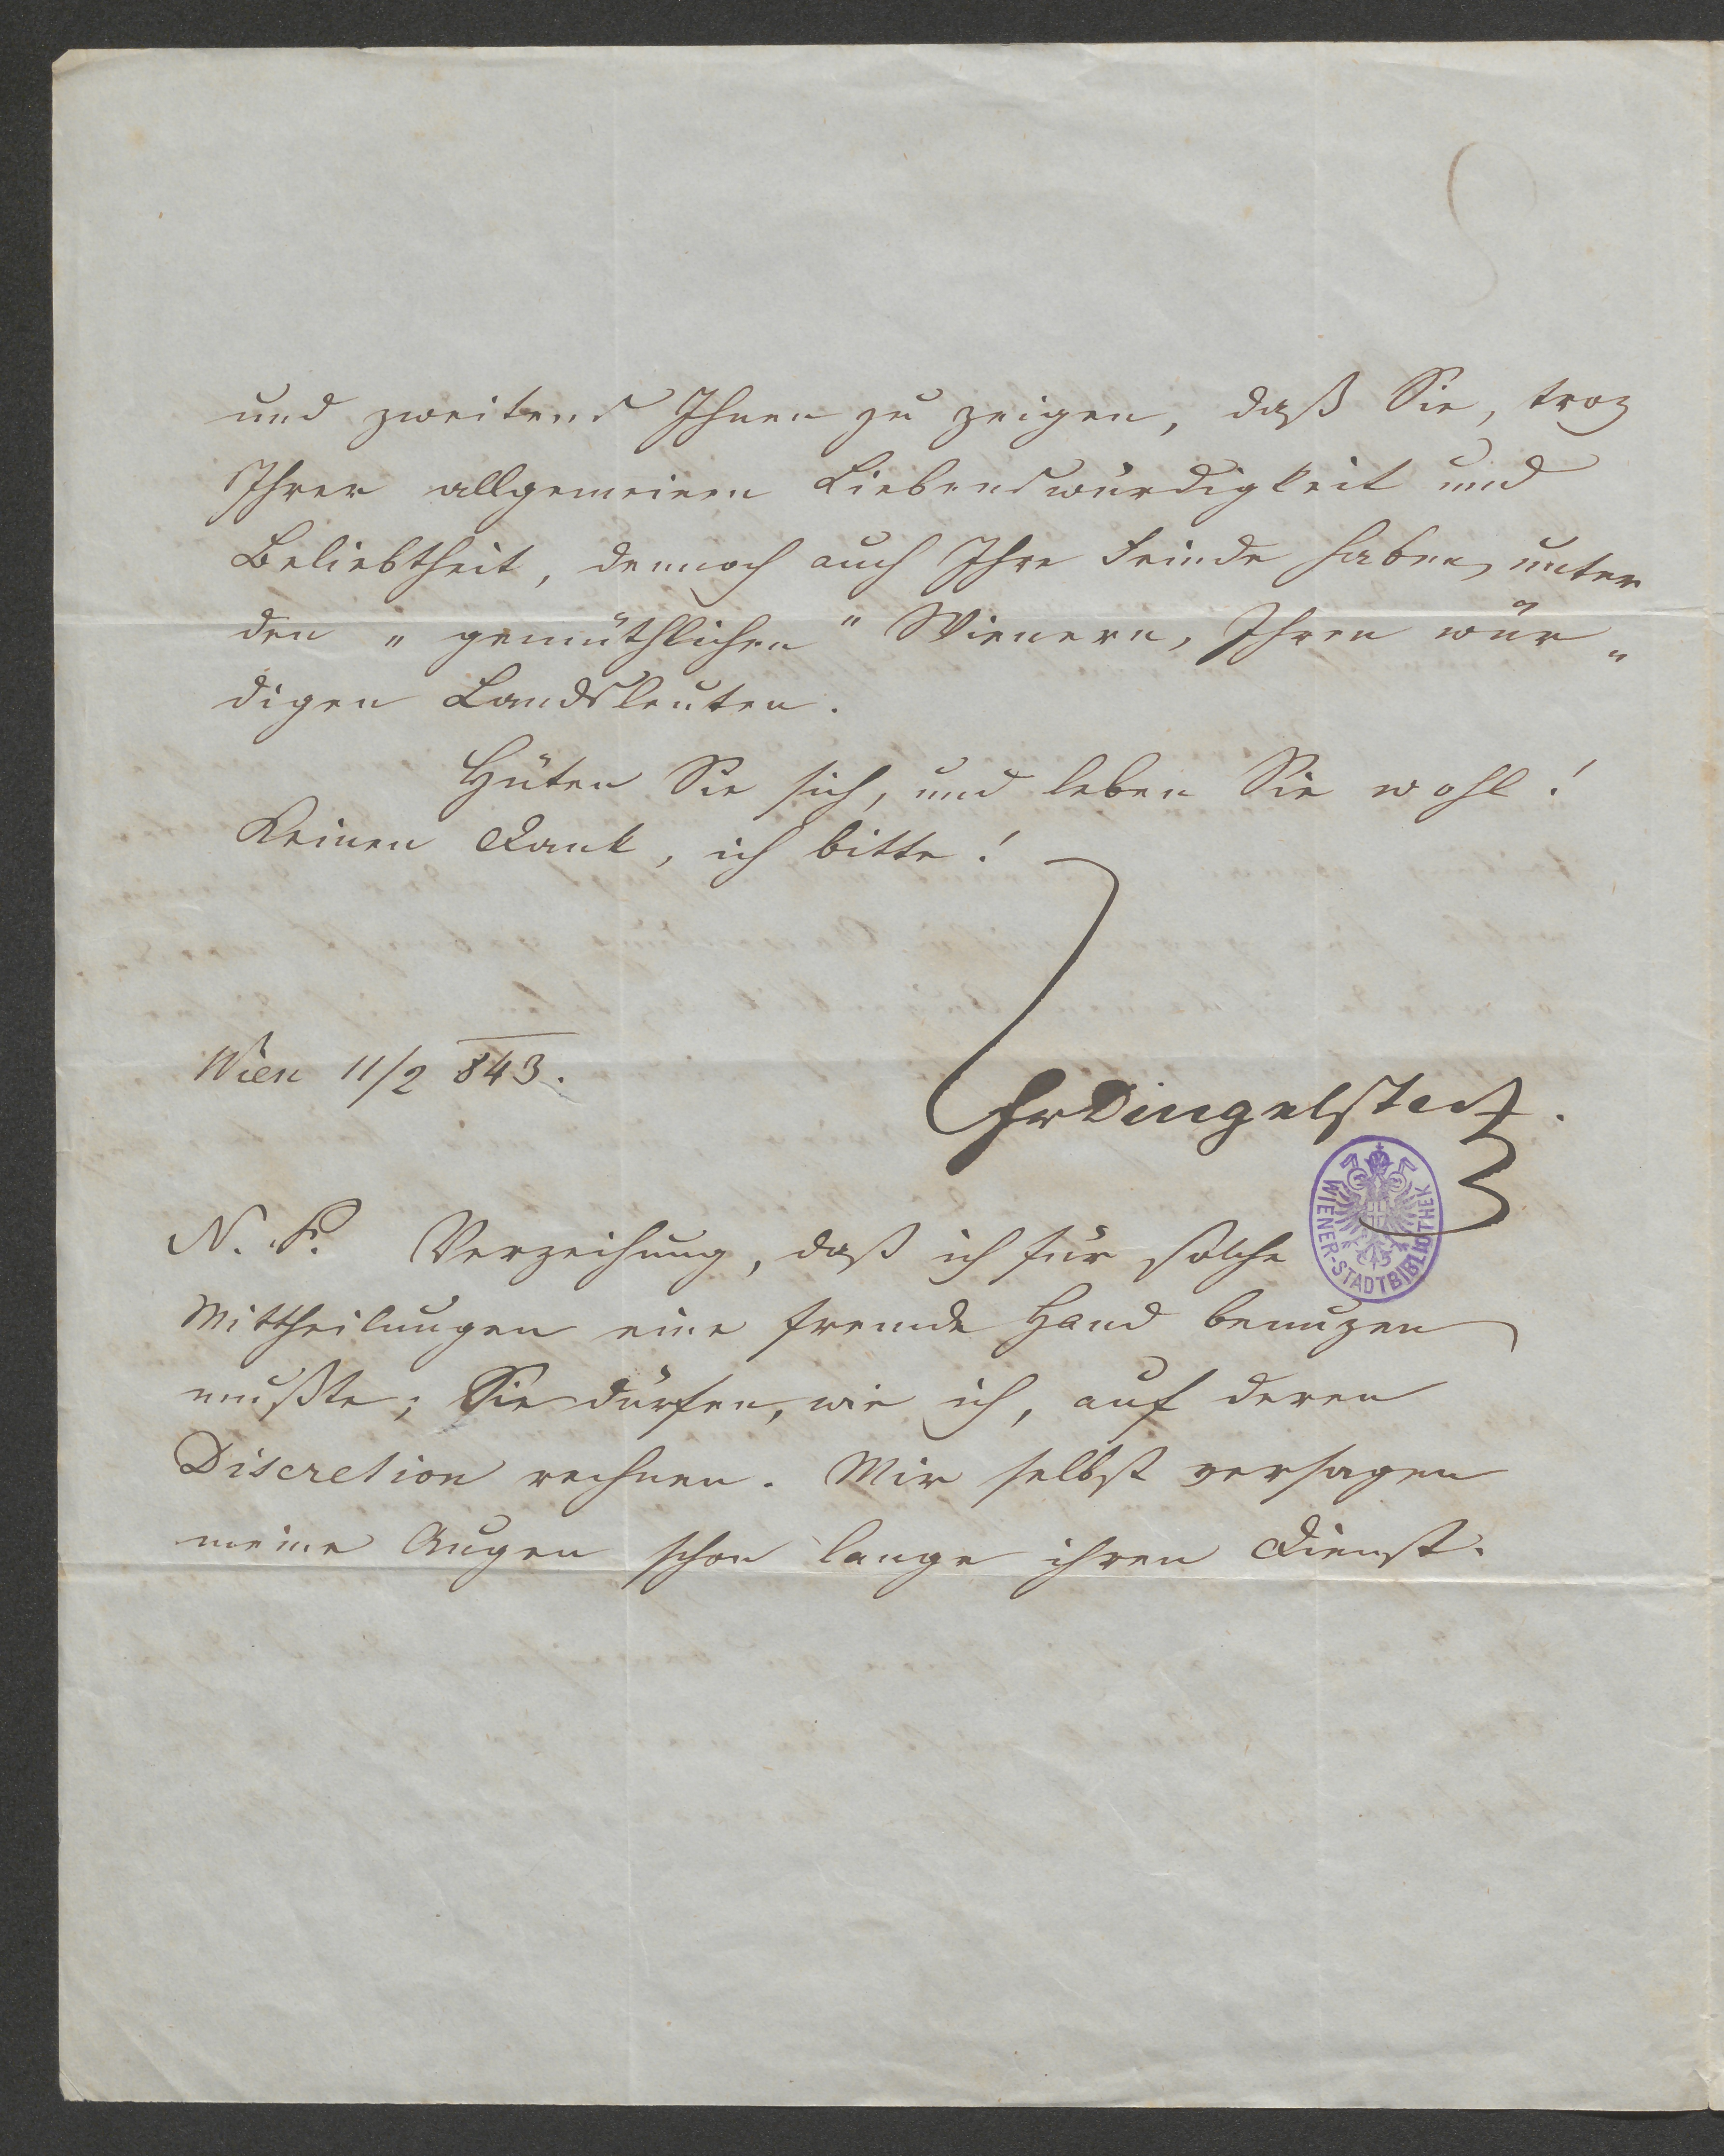 und zweitens Ihnen zu zeigen, daß Sie, troz
Ihrer allgemeinen Liebenswürdigkeit und
Beliebtheit, dennoch auch Ihre Feinde haben, unter
den „gemüthlichen" Wienern, Ihren wür„
digen Landsleuten.
Hüten Sie sich, und leben Sie wohl!
Keinen Dank, ich bitte!
Wien 11/2 843.
FrDingelstedt.
WIENER-STADTBIBLIOTHEK
N. S. Verzeihung, daß ich für solche
Mittheilungen eine fremde Hand benuzen
mußte; Sie dürfen, wie ich, auf deren
Discretion rechnen. Mir selbst versagen
meine Augen schon lange ihren Dienst.